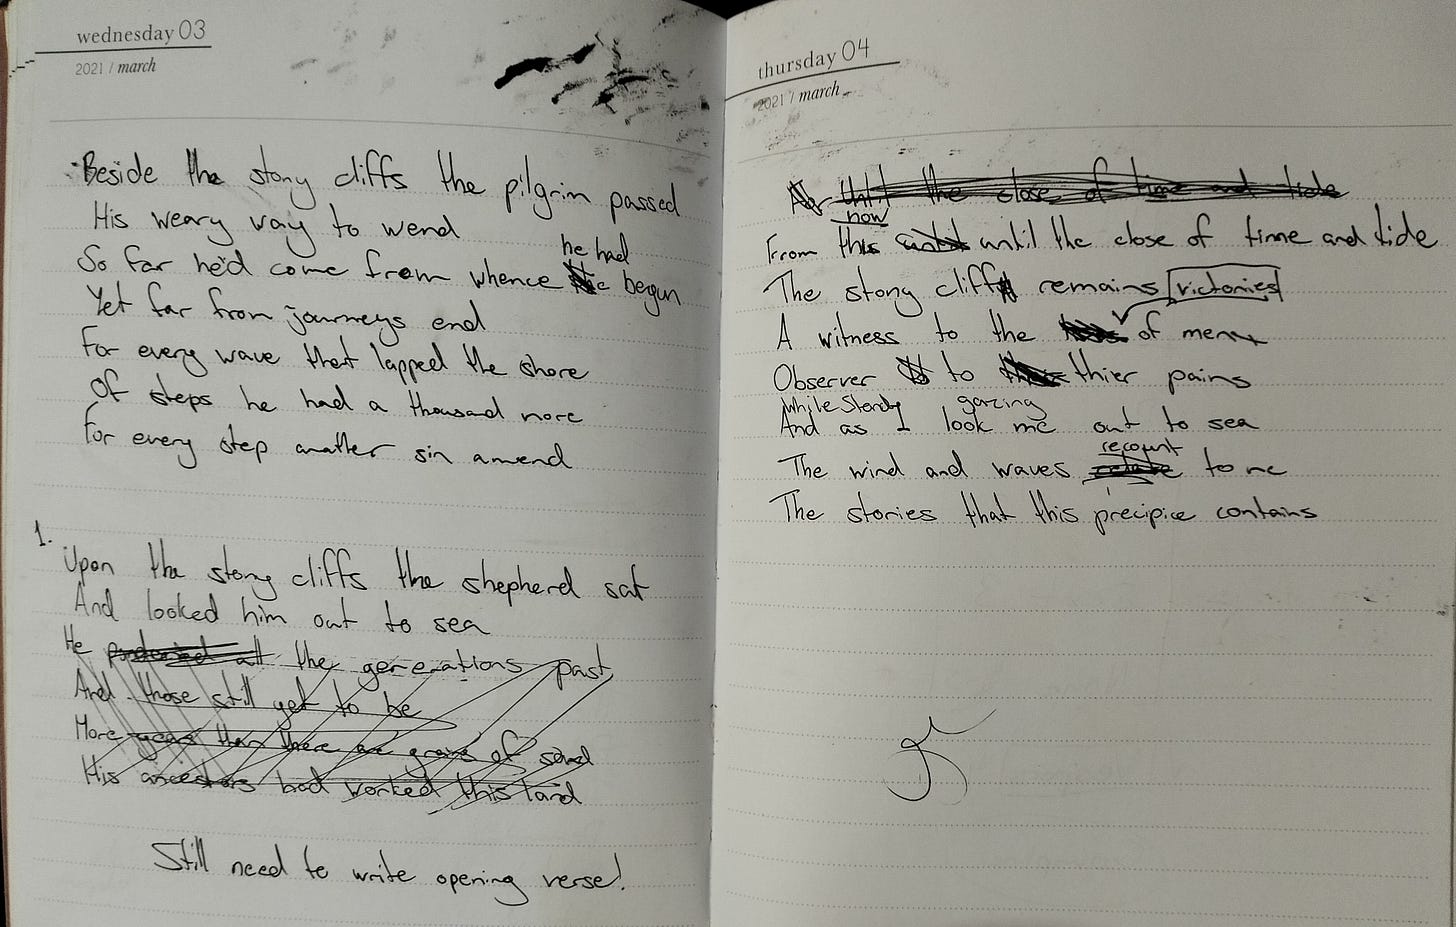 wednesday 03
2021 / march
Beside the stony cliffs the pilgrim passed
His weary way to wend
So far he'd come from whence he had begun
Yet far from journeys end
For every wave that lapped the shore
Of steps he had a thousand more
For every step another sin amend
1.
Upon the stony cliffs the shepherd sat
And looked him out to sea
He pondered all the generations past
And those still yet to be
More years than there are grains of sand
His ancestors had worked this land
Still need to write opening verse!
thursday 04
2021 / march
until the close of time and tide
now
From this until until the close of time and tide
The stony cliff remains victories
A witness to the of men
Observer to thier pains
While Standy gazing
And as I look me out to sea
recount
The wind and waves relate to me
The stories that this precipice contains